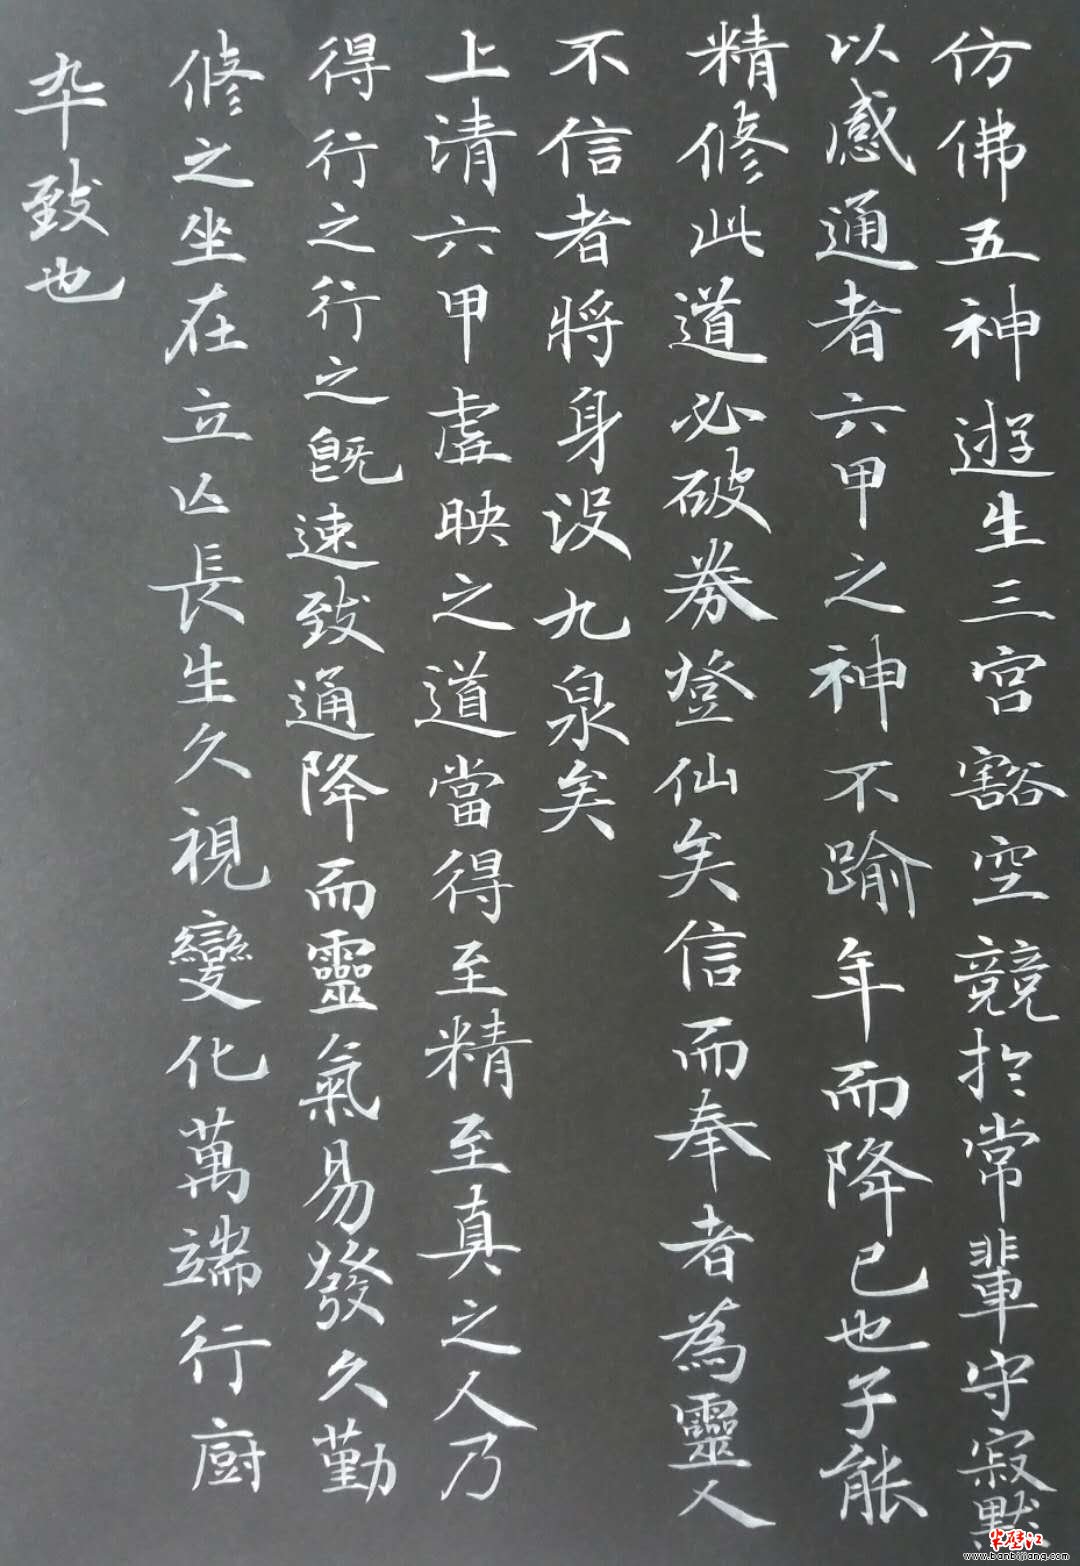 仿佛五神遊生三宮豁空競於常輩守寂默
以感通者六甲之神不踰年而降已也子能
精修此道必破券登仙矣信而奉者為靈人
不信者將身没九泉矣
上清六甲虛映之道當得至精至真之人乃
得行之行之既速致通降而靈氣易發久勤
修之坐在立亾長生久視變化萬端行廚
卒致也
半壁江
www.banbijiang.com